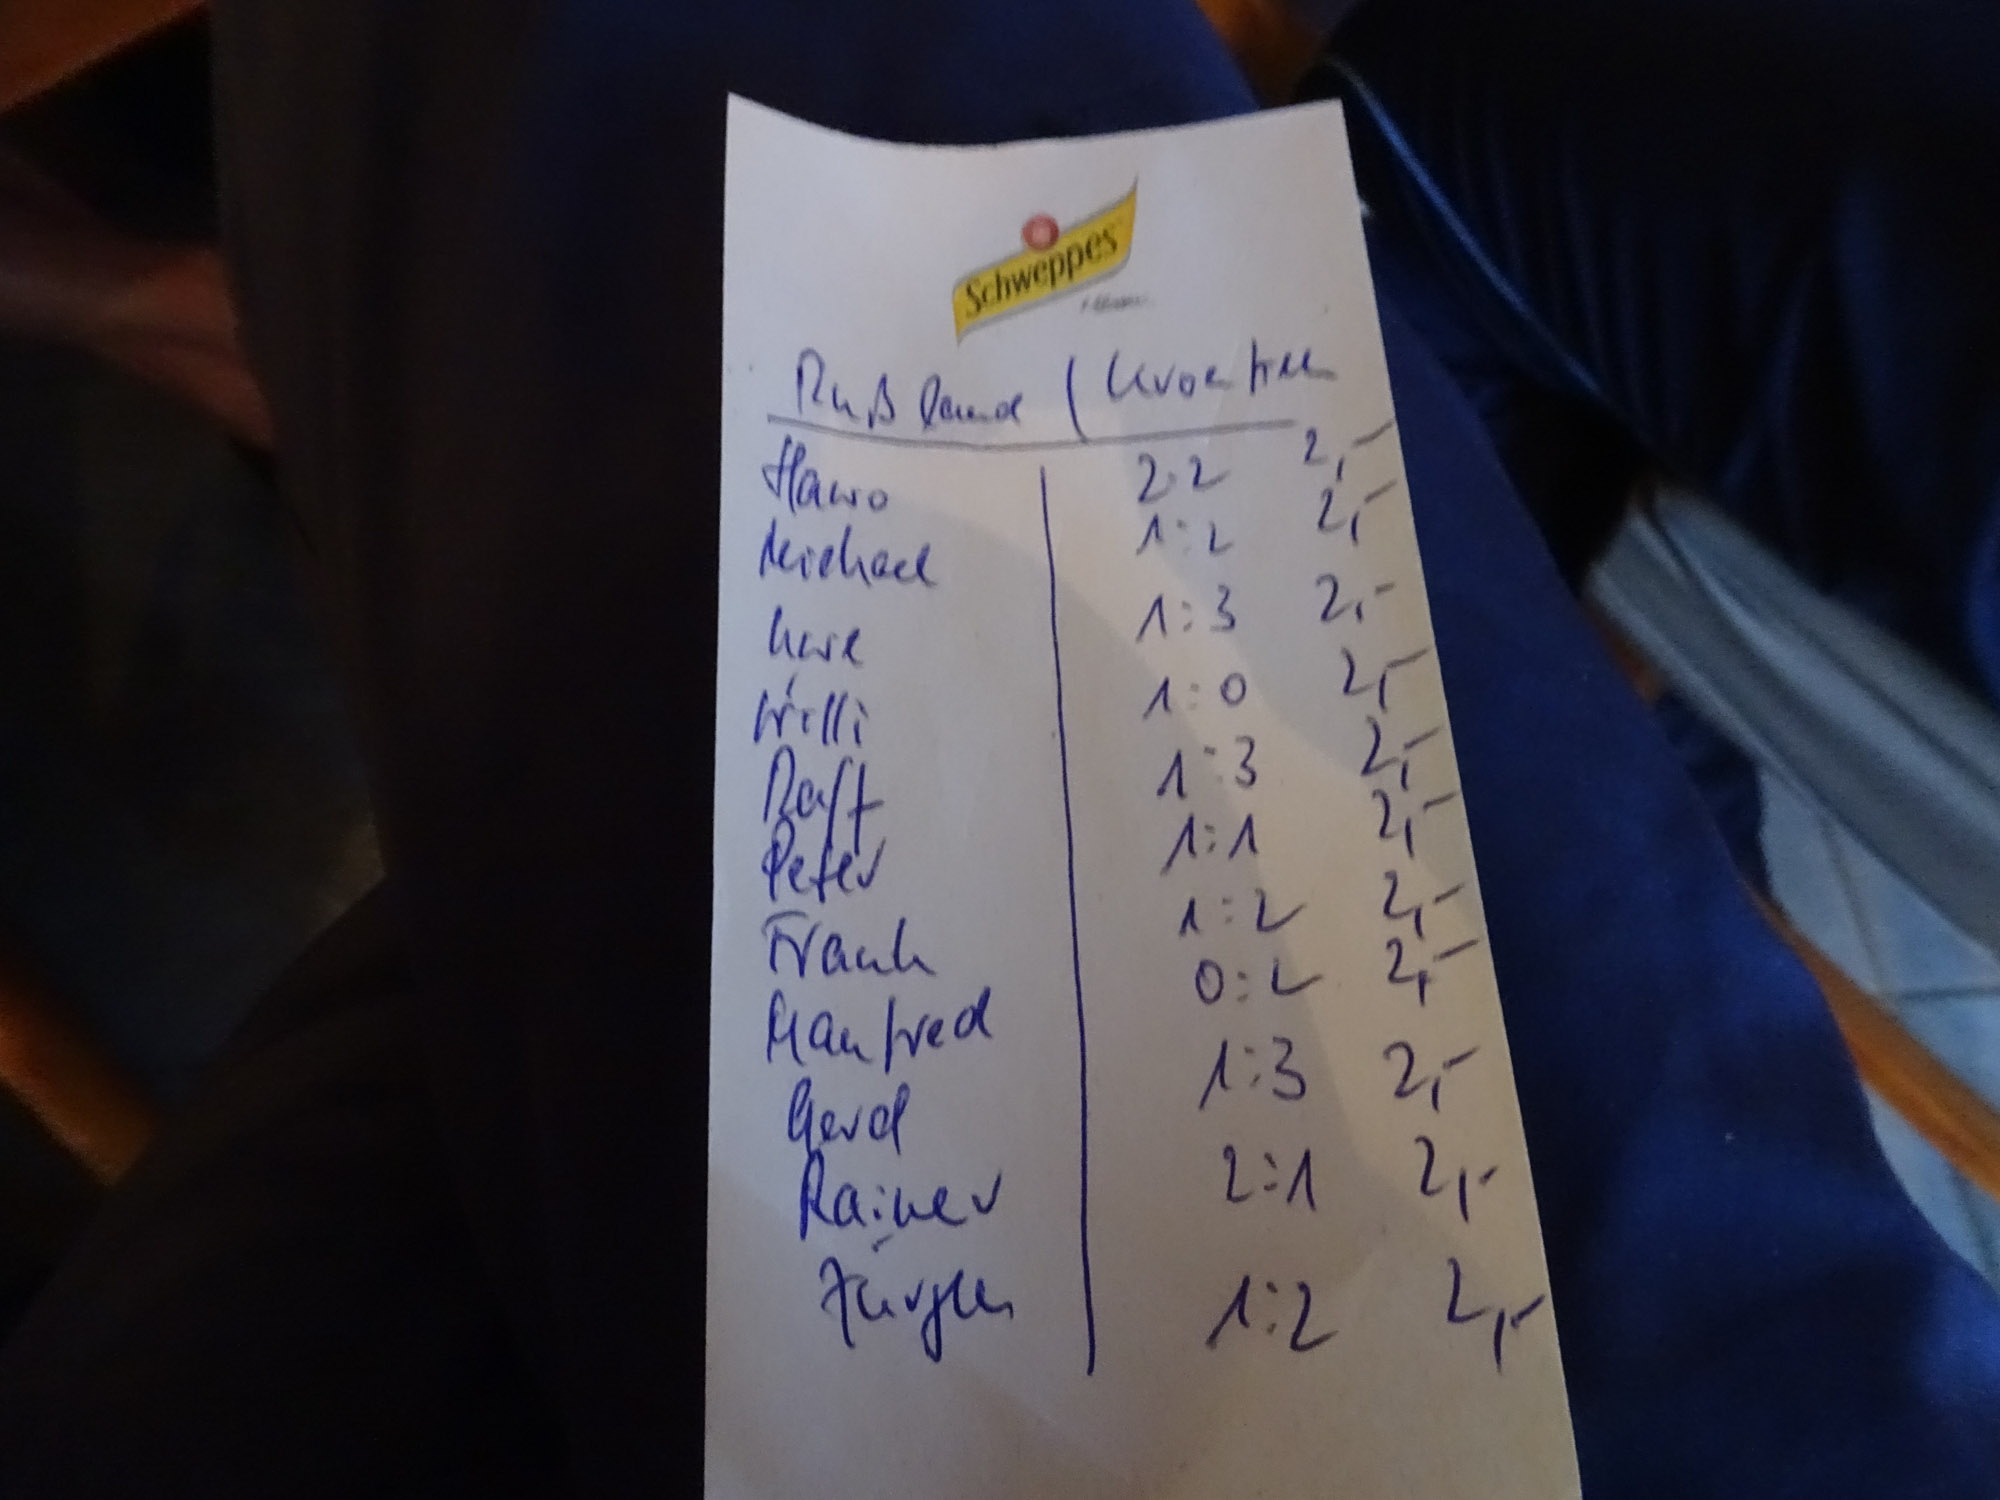 Schweppes
Rußland / Kroatien
Hawo 2:2 2,-
Michael 1:2 2,-
Uwe 1:3 2,-
Willi 1:0 2,-
Ralf 1:3 2,-
Peter 1:1 2,-
Frank 1:2 2,-
Manfred 0:2 2,-
Gerd 1:3 2,-
Rainer 2:1 2,-
Jürgen 1:2 2,-